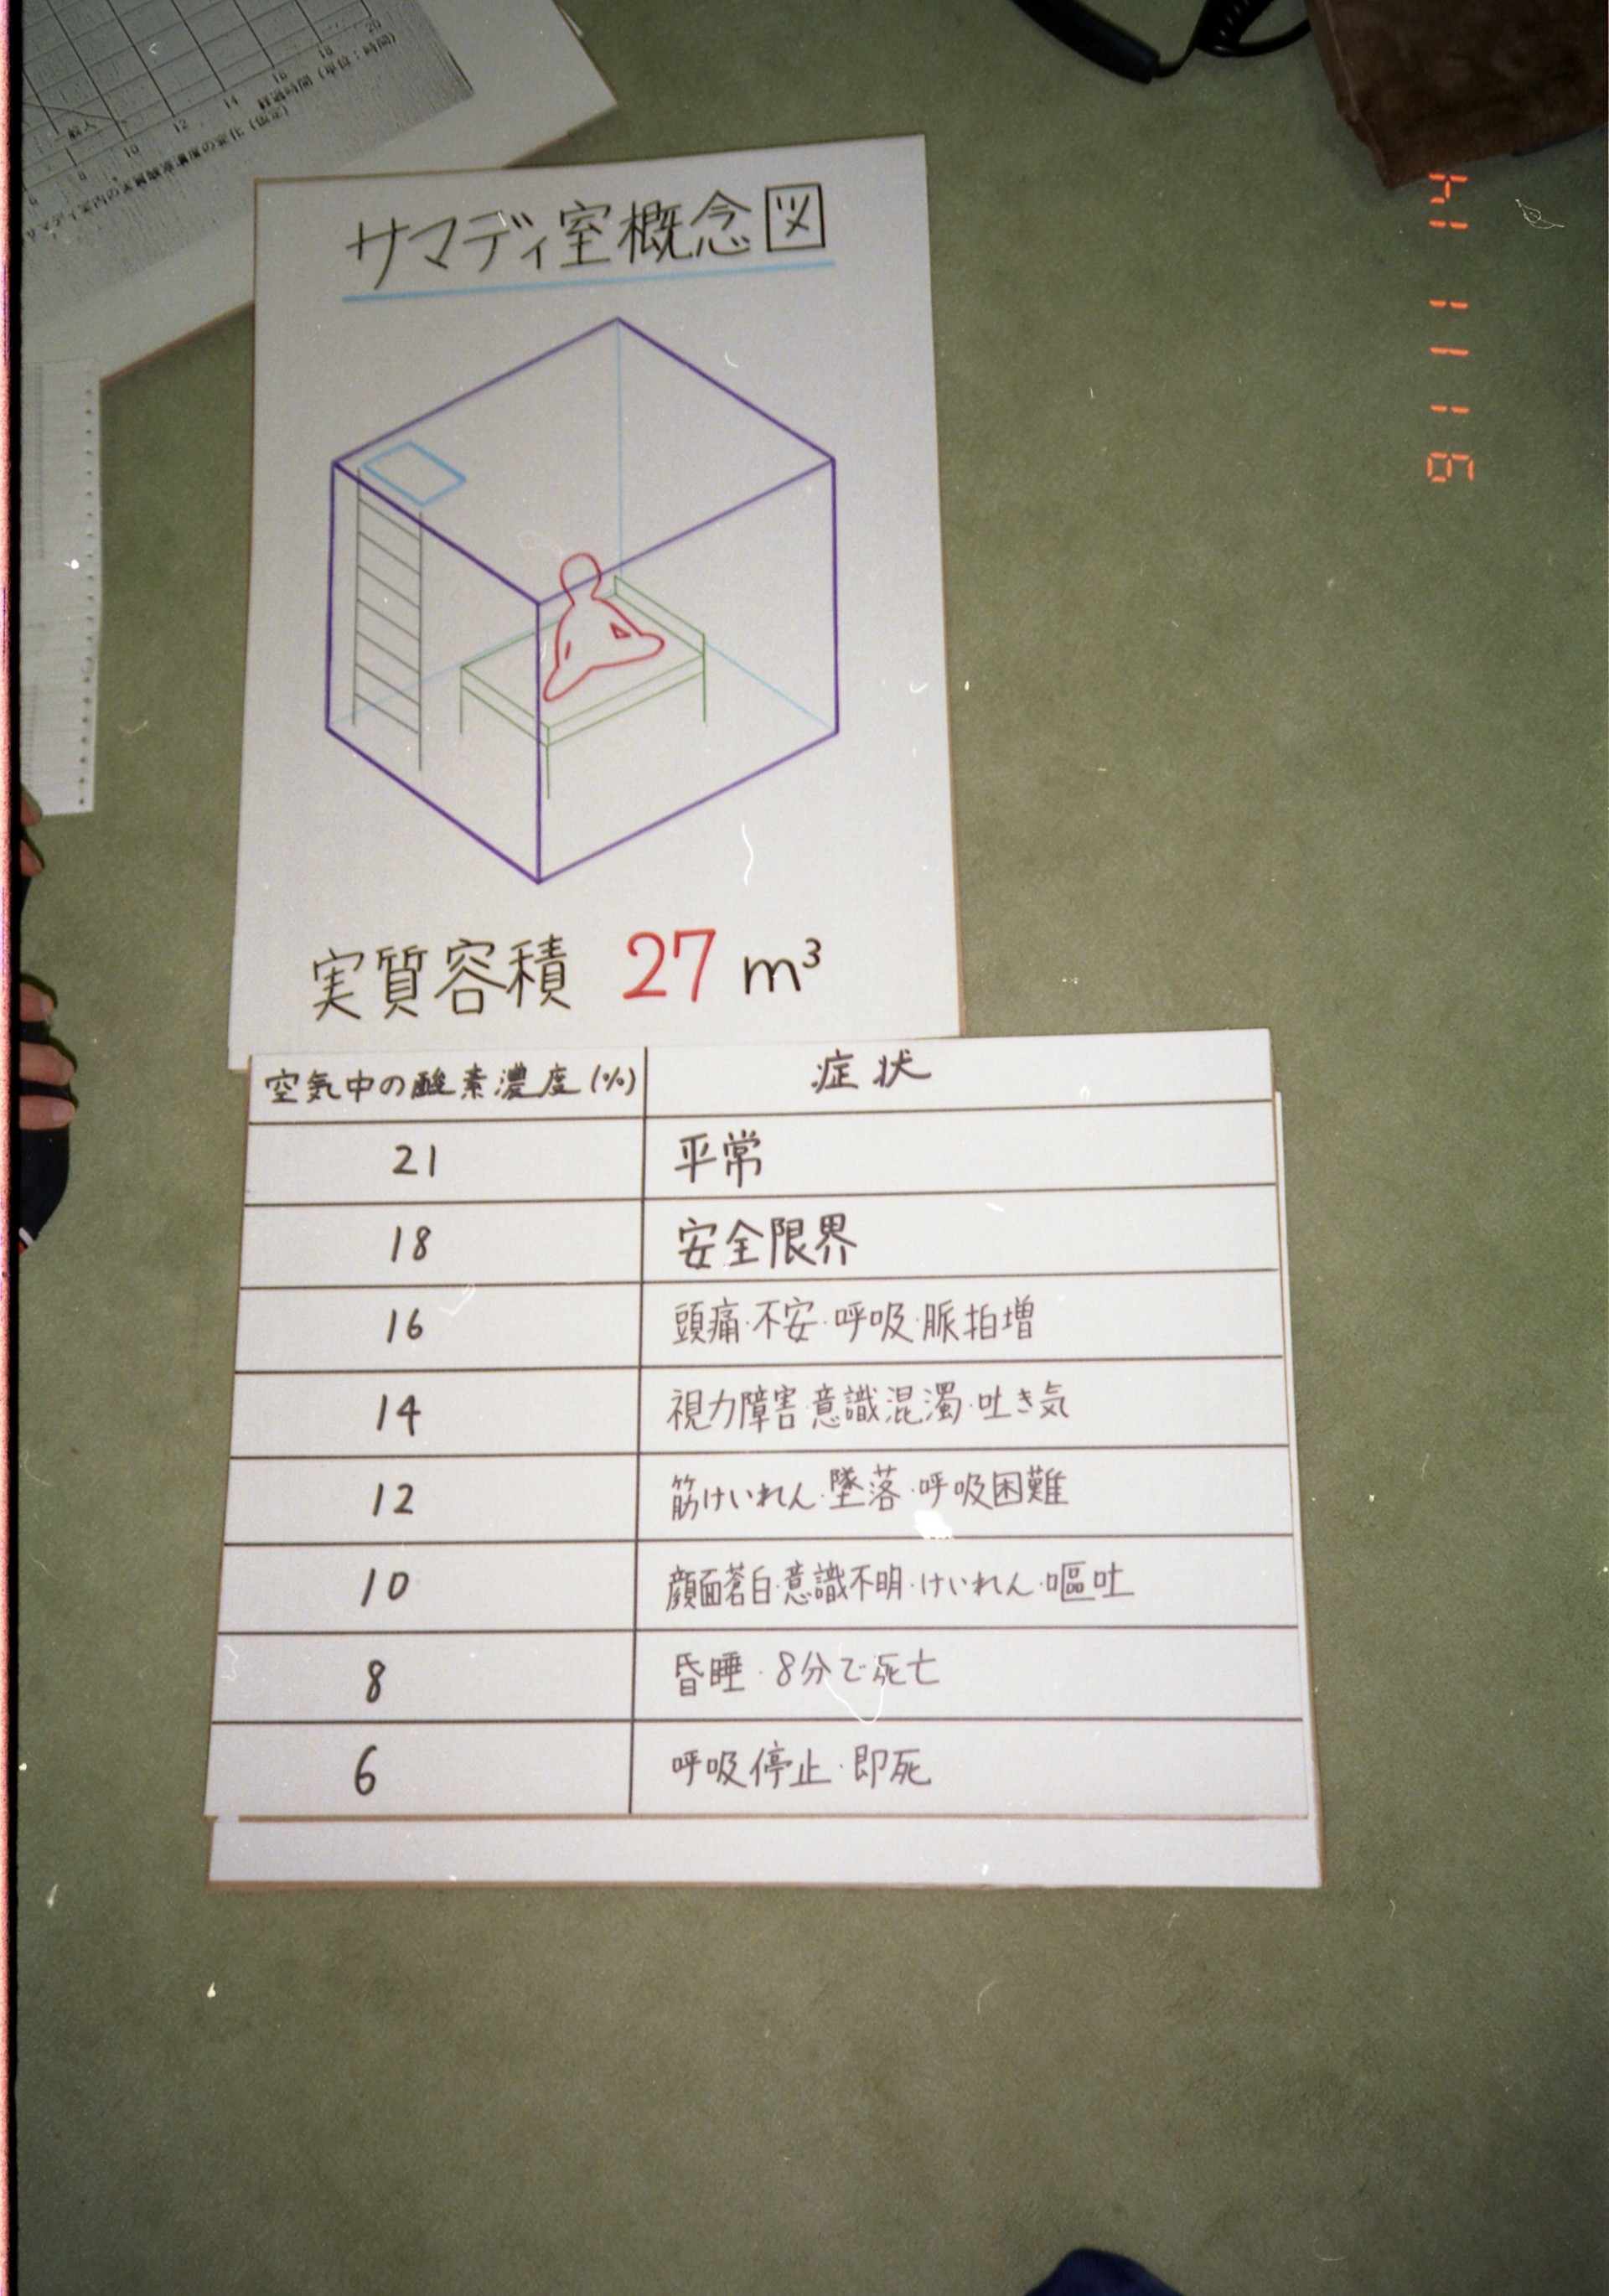 サマディ室概念図
実質容積 27 m³
空気中の酸素濃度(%) 症状
21 平常
18 安全限界
16 頭痛・不安・呼吸・脈拍増
14 視力障害・意識混濁・吐き気
12 筋けいれん・墜落・呼吸困難
10 顔面蒼白・意識不明・けいれん・嘔吐
8 昏睡・8分で死亡
6 呼吸停止・即死
一般人
6 8 10 12 14 16 18 20
経過時間(単位:時間)